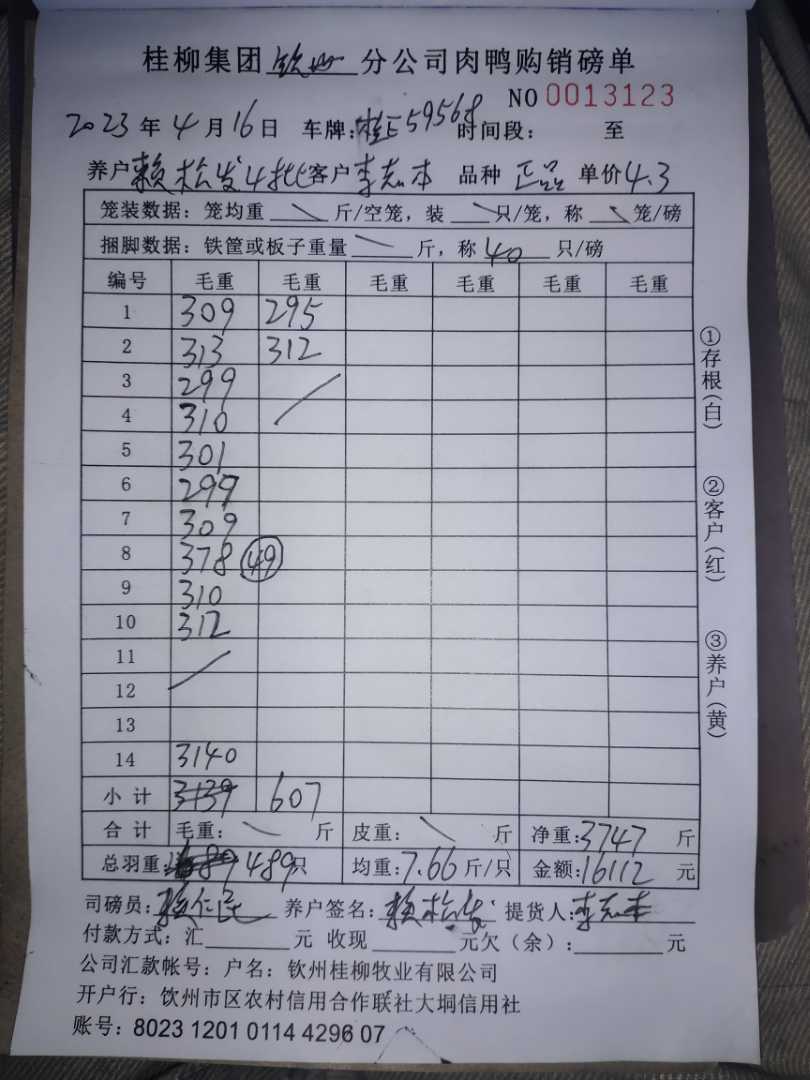 桂柳集团 钦州 分公司肉鸭购销磅单
NO 0013123
2023 年 4 月 16 日 车牌: 桂E59568 时间段: 至
养户 赖松发4批 客户 李志本 品种 正品 单价 4.3
笼装数据: 笼均重 斤/空笼, 装 只/笼, 称 笼/磅
捆脚数据: 铁筐或板子重量 斤, 称 40 只/磅
编号 毛重 毛重 毛重 毛重 毛重 毛重
1 309 295
2 313 312
3 299
4 310
5 301
6 299
7 309
8 378 49
9 310
10 312
11
12
13
14 3140
小计 3139 607
合计 毛重: 斤 皮重: 斤 净重: 3747 斤
总羽重 489 只 均重: 7.66 斤/只 金额: 16112 元
司磅员: 养户签名: 赖松发 提货人: 李志本
付款方式: 汇 元 收现 元欠(余): 元
公司汇款帐号: 户名: 钦州桂柳牧业有限公司
开户行: 饮州市区农村信用合作联社大垌信用社
账号: 8023 1201 0114 4296 07
①存根(白)
②客户(红)
③养户(黄)